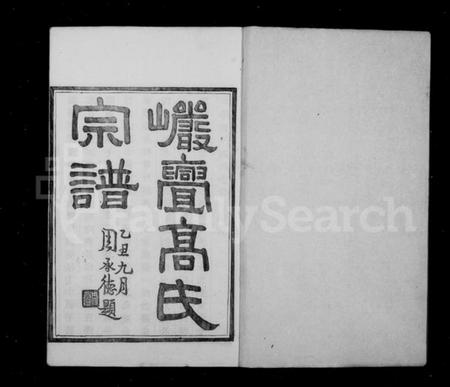 巉亹高氏
宗譜
乙丑九月
周承德題
FamilySearch